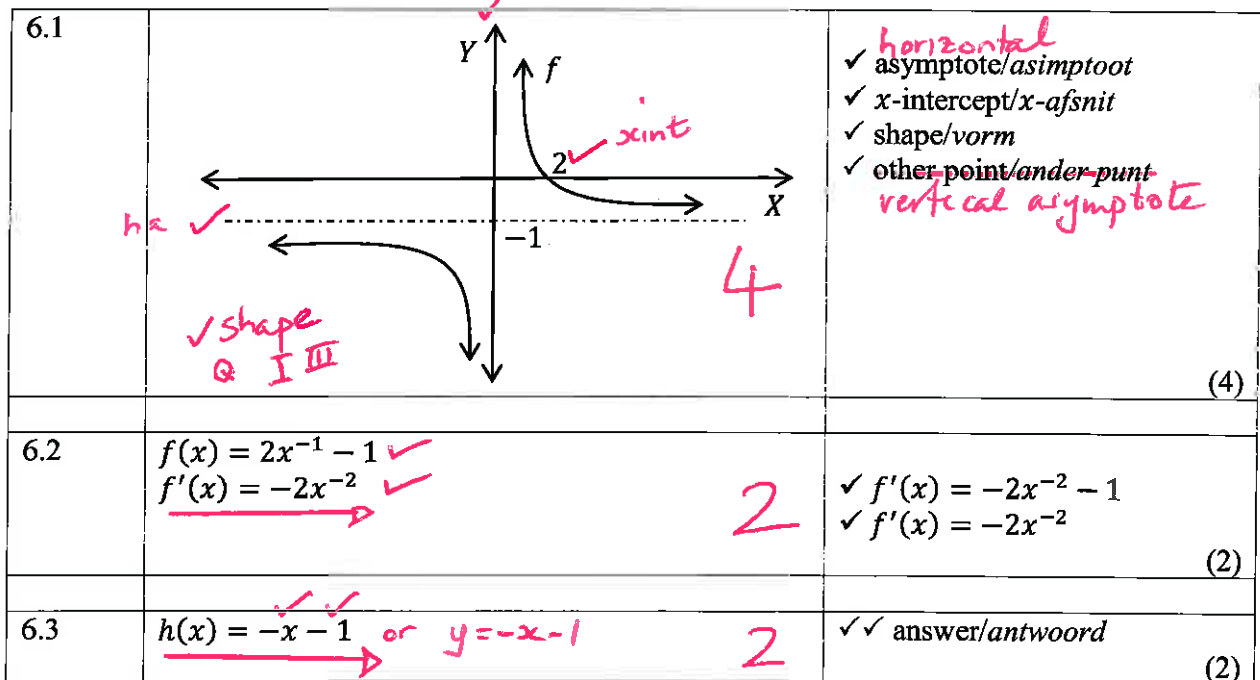 6.1
Y
f
✓ xint
2
X
ha ✓
-1
4
✓ shape
Q I III
horizontal
✓ asymptote/asimptoot
✓ x-intercept/x-afsnit
✓ shape/vorm
✓ other point/ander punt
vertical asymptote
(4)
6.2
f(x) = 2x⁻¹ − 1 ✓
f'(x) = −2x⁻² ✓
2
✓ f'(x) = −2x⁻² − 1
✓ f'(x) = −2x⁻²
(2)
6.3
✓ ✓
h(x) = −x − 1 or y = -x-1
2
✓✓ answer/antwoord
(2)